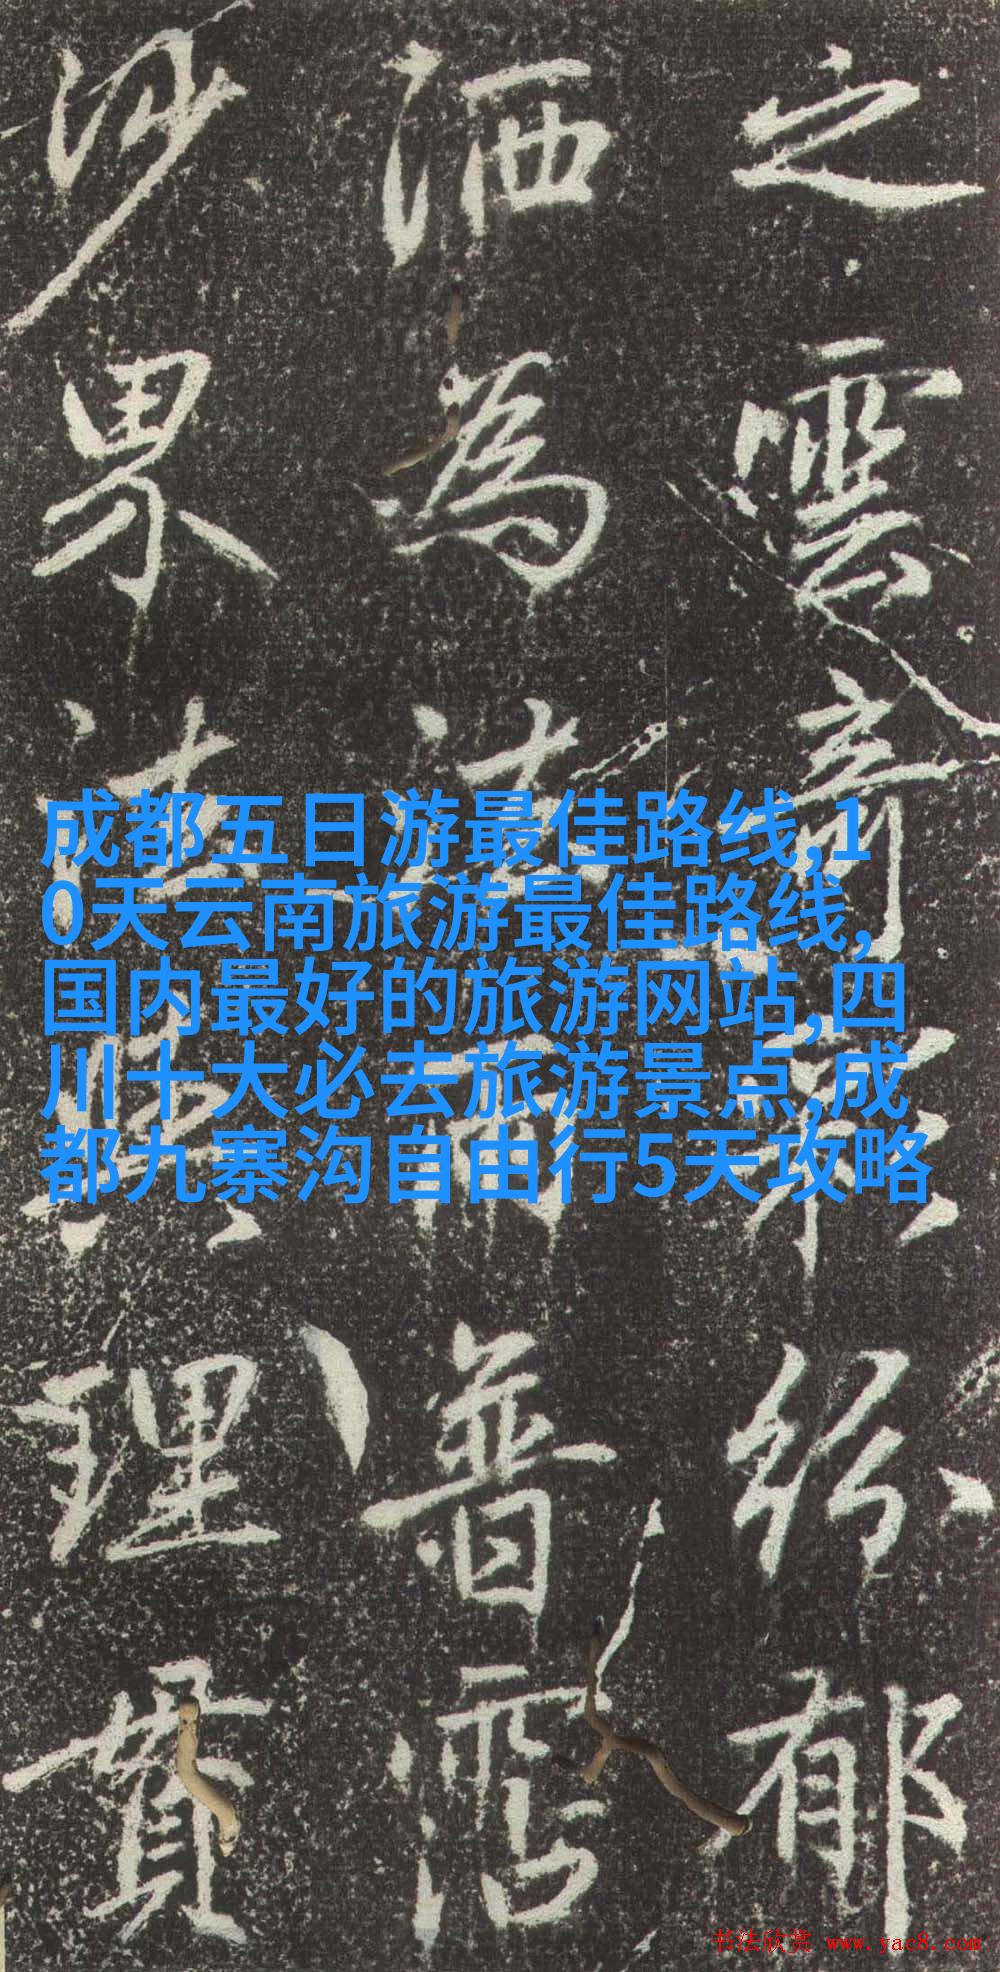 之雲紛郁
洒為法雨普霑
沙界法理貫
成都五日游最佳路线,1
0天云南旅游最佳路线,
国内最好的旅游网站,四
川十大必去旅游景点,成
都九寨沟自由行5天攻略
书法欣赏 www.yac8.com